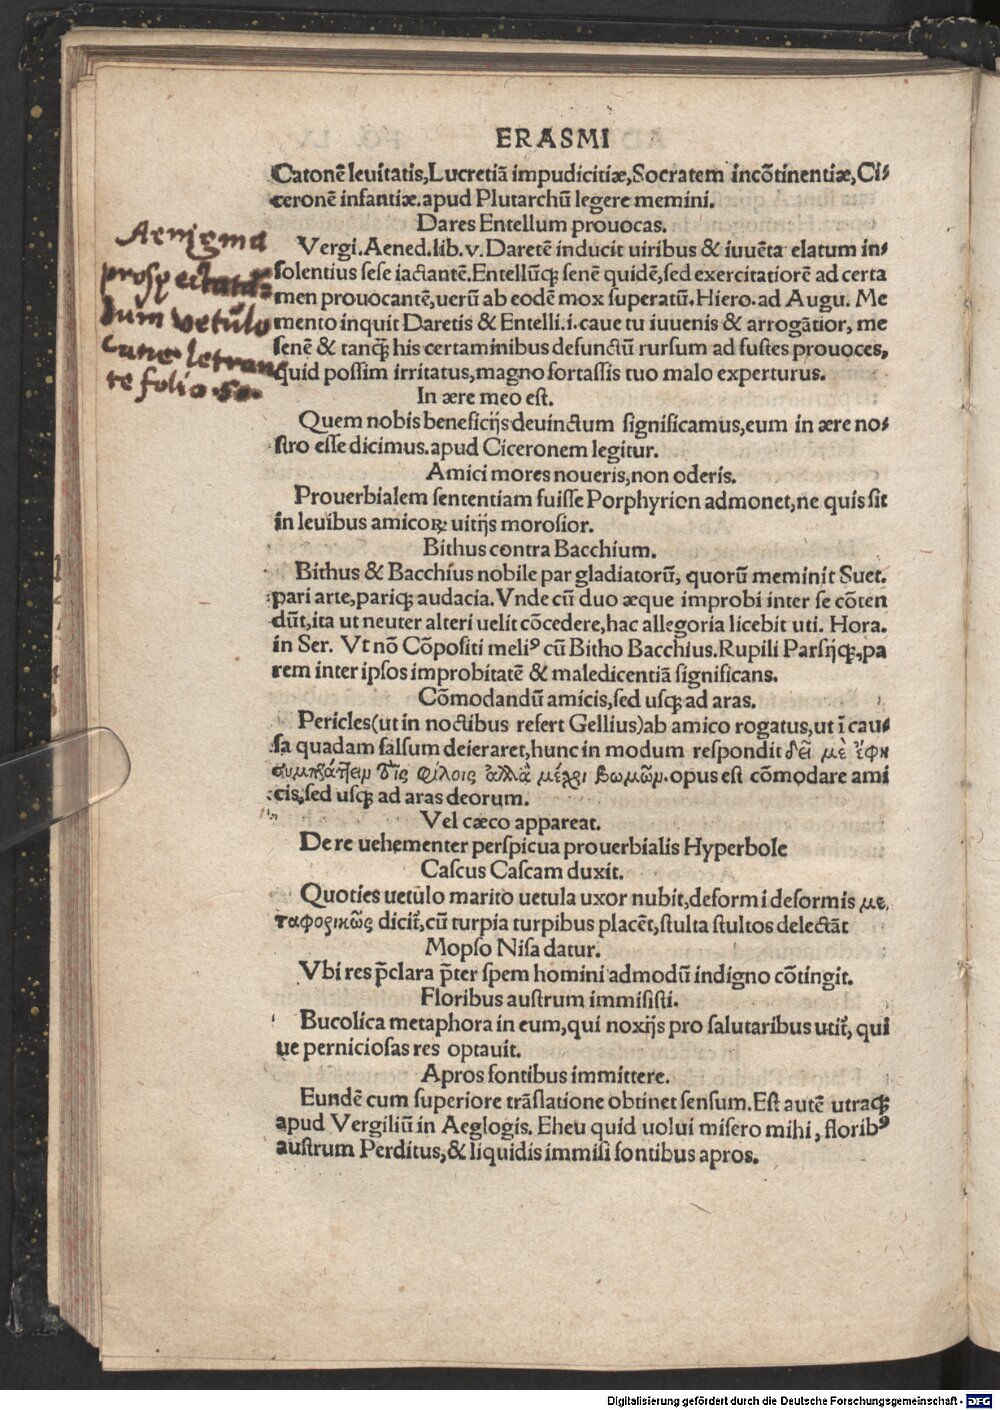 ERASMI
Catonē leuitatis,Lucretiā impudicitiæ,Socratem incōtinentiæ,Ci⸗
ceronē infantiæ.apud Plutarchū legere memini.
Dares Entellum prouocas.
Vergi.Aened.lib.v.Daretē inducit uiribus & iuuēta elatum in⸗
solentius sese iactantē.Entellūq; senē quidē,sed exercitatiorē ad certa
men prouocantē,uerū ab eodē mox superatū.Hiero.ad Augu. Me
mento inquit Daretis & Entelli.i.caue tu iuuenis & arrogātior, me
senē & tanq̄ his certaminibus defunctū rursum ad fustes prouoces,
quid possim irritatus,magno fortassis tuo malo experturus.
In ære meo est.
Quem nobis beneficijs deuinctum significamus,eum in ære no⸗
stro esse dicimus.apud Ciceronem legitur.
Amici mores noueris,non oderis.
Prouerbialem sententiam fuisse Porphyrion admonet,ne quis sit
in leuibus amicoꝝ uitijs morosior.
Bithus contra Bacchium.
Bithus & Bacchius nobile par gladiatorū, quorū meminit Suet.
pari arte,pariq; audacia.Vnde cū duo æque improbi inter se cōten
dūt,ita ut neuter alteri uelit cōcedere,hac allegoria licebit uti. Hora.
in Ser. Vt nō Cōpositi meliꝰ cū Bitho Bacchius.Rupili Parsijq;,pa
rem inter ipsos improbitatē & maledicentiā significans.
Cōmodandū amicis,sed usq; ad aras.
Pericles(ut in noctibus refert Gellius)ab amico rogatus,ut ī cau⸗
sa quadam falsum deieraret,hunc in modum respondit δεῖ μὲ ἔφη
συμπράττειν τοῖς φίλοις ἀλλὰ μέχρι βωμῶν.opus est cōmodare ami
cis,sed usq; ad aras deorum.
Vel cæco appareat.
De re uehementer perspicua prouerbialis Hyperbole
Cascus Cascam duxit.
Quoties uetulo marito uetula uxor nubit,deformi deformis με
ταφορικῶς dicit̄,cū turpia turpibus placēt,stulta stultos delectāt
Mopso Nisa datur.
Vbi res p̄clara p̄ter spem homini admodū indigno cōtingit.
Floribus austrum immisisti.
Bucolica metaphora in eum,qui noxijs pro salutaribus utit̄, qui
ue perniciosas res optauit.
Apros fontibus immittere.
Eundē cum superiore trāslatione obtinet sensum.Est autē utraq;
apud Vergiliū in Aeglogis. Eheu quid uolui misero mihi, floribꝰ
austrum Perditus,& liquidis immisi fontibus apros.
Aenigma
prospectatā⸗
dum vetulo
cane letran
te folio .50.
Digitalisierung gefördert durch die Deutsche Forschungsgemeinschaft - DFG